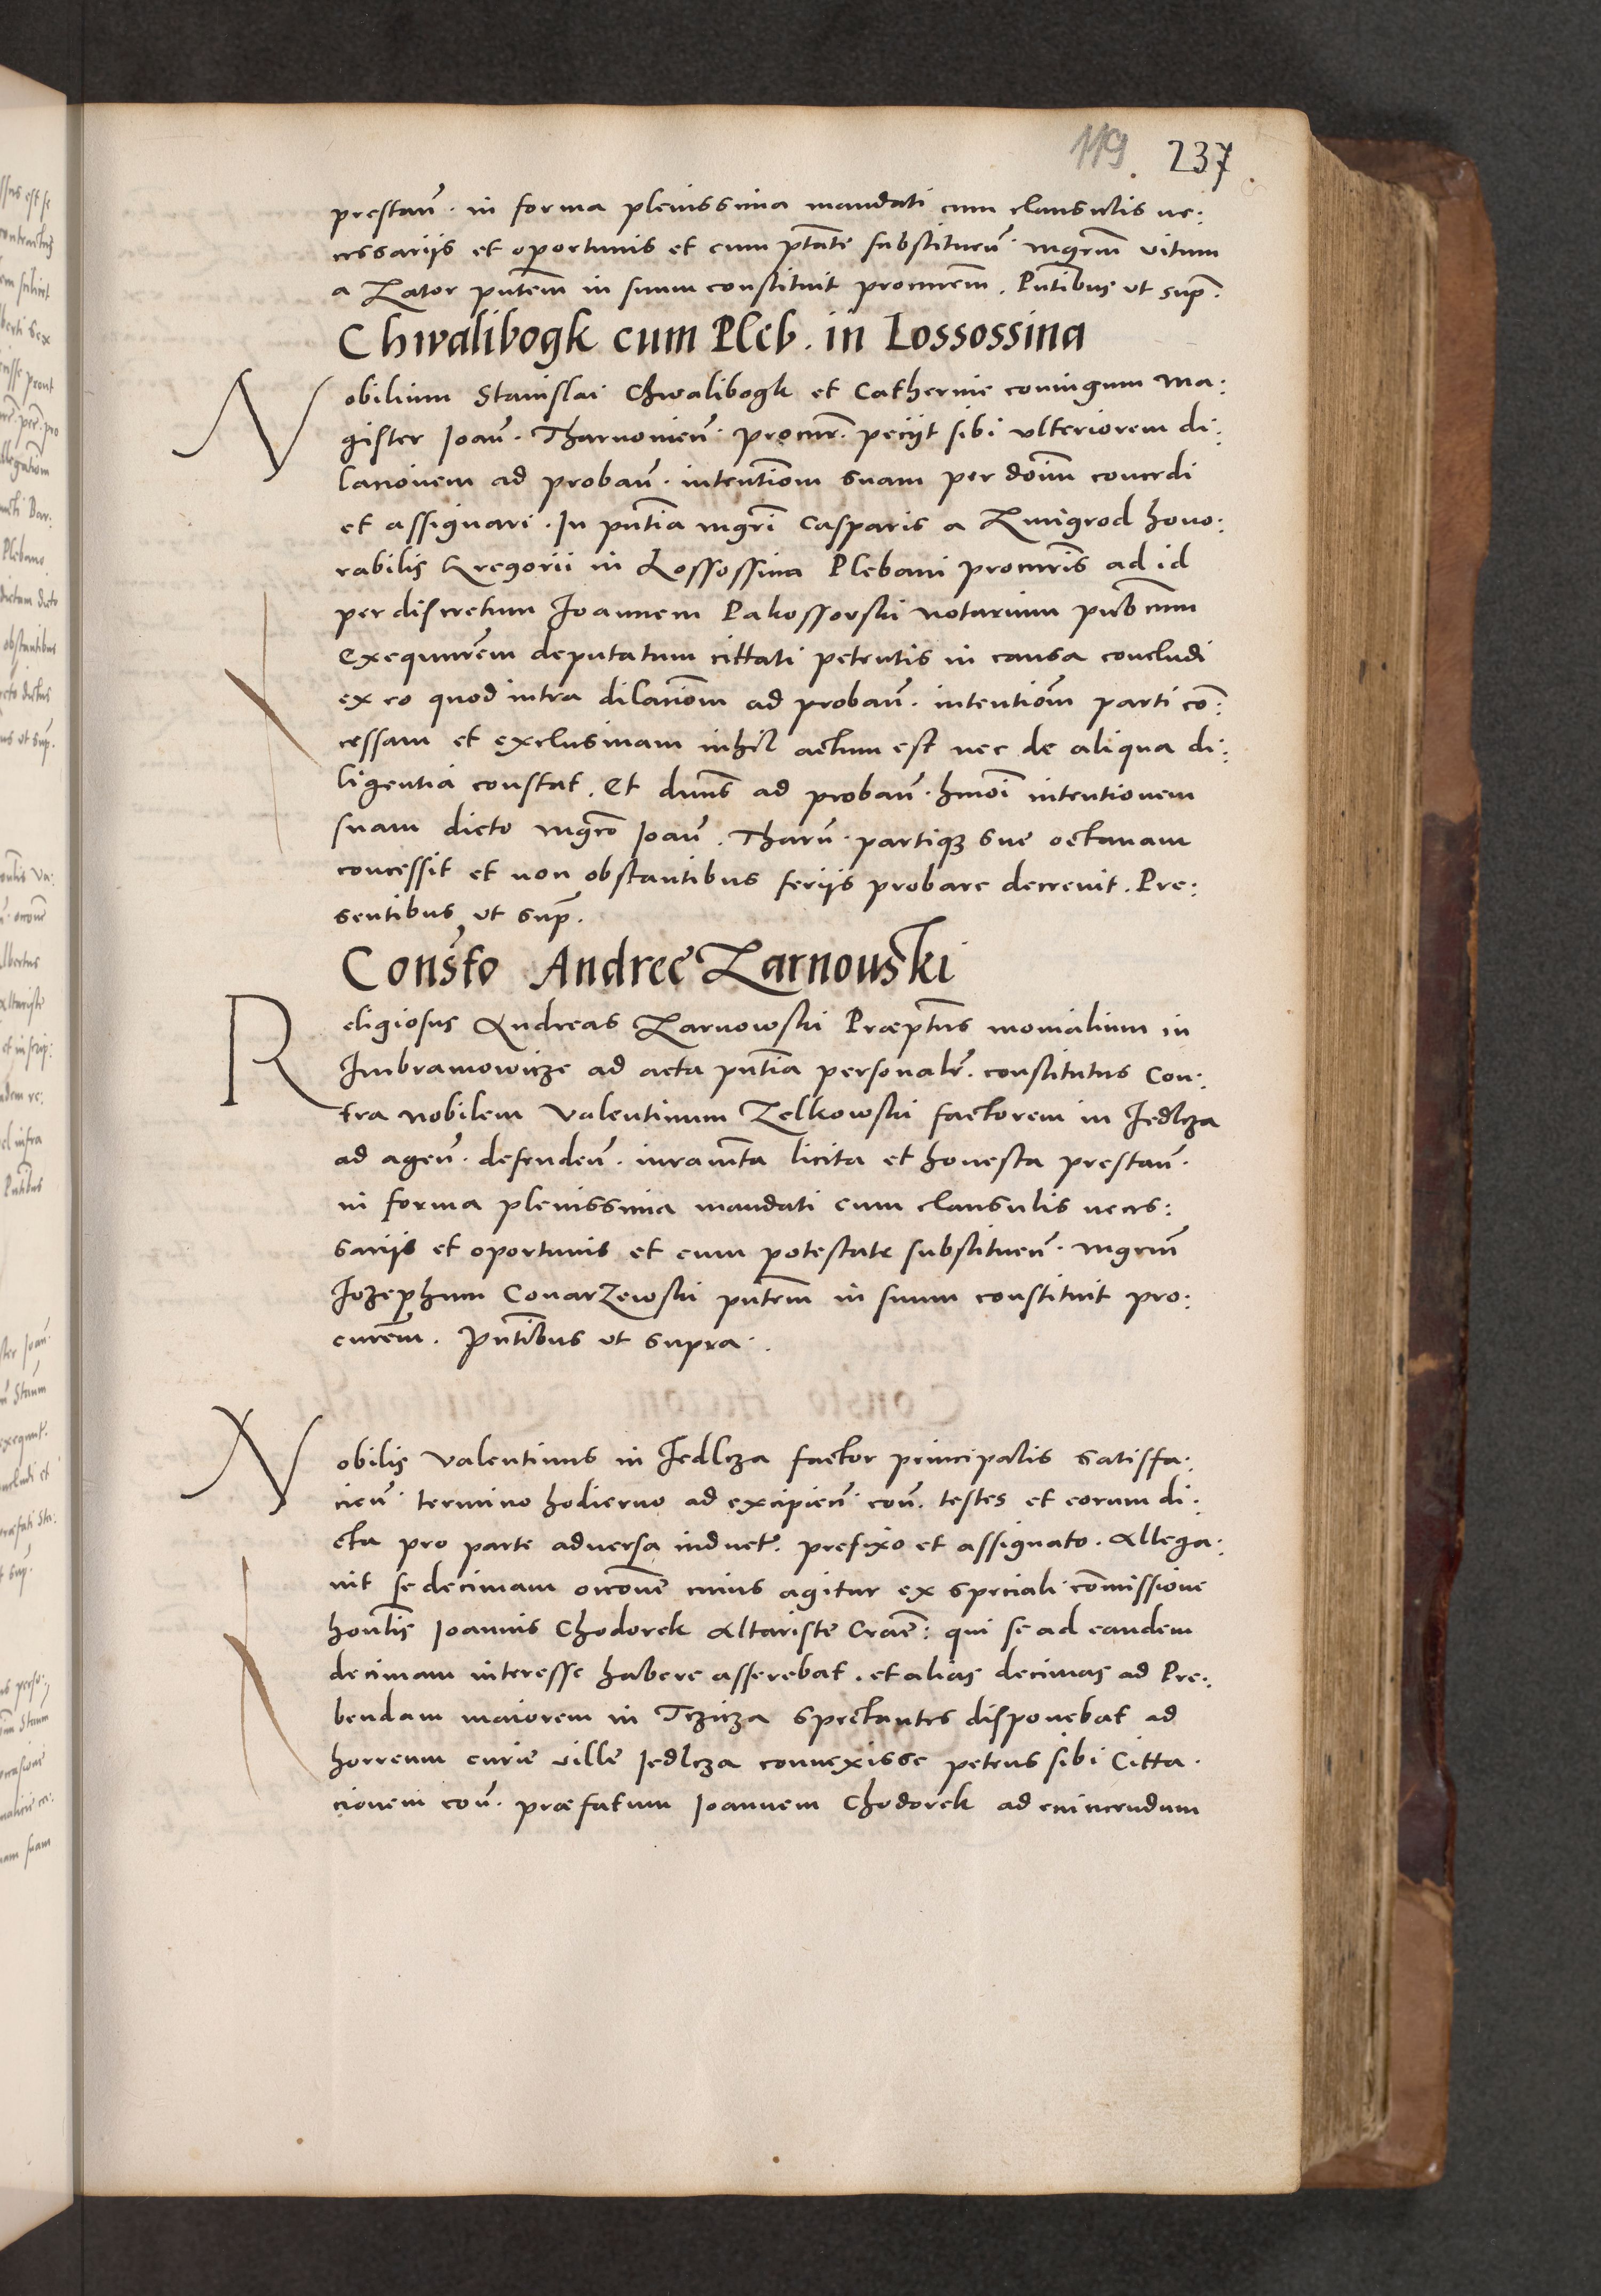 119 237
prestan̄. in forma plenissima mandati cum clausulis ne:
cessariis et oportunis et cum ptāte substituen̄. mgrm̄ vitum
a Zator pn̄tem in suum constituit procurem̄. Pn̄tibus ut supͣ.
Chwalibogk cum Pleb. in Lossossina
Nobilium Stanislai Chwalibogk et Catherine coniugum Ma:
gister Joan̄. Tharnonien̄. procur̄. peciit sibi ulteriorem di:
lacionem ad proban̄. intentiōm suam per dōm̄ concedi
et assignari. In pn̄tia mgrī Casparis a Zmigrod hono:
rabilis Gregorii in Lossossina Plebani procurīs ad id
per discretum Joannem Pakossovski notarium pub cum
exequcūrem deputatum cittati petentis in causa concludi
ex eo quod intra dilacioм̄ ad proban̄. intentiōm parti cō:
cessam et exclusivam nihil actum est nec de aliqua di:
ligentia constat. Et dūns ad proban̄. hmoī intentionem
suam dicto mgrō Joan̄. Tharn̄. partiqꝫ sue octavam
concessit et non obstantibus feriis probare decrevit. Pre:
sentibus ut supͣ.
Consto Andree Zarnouski
Religiosus Andreas Zarnowski Præptūs monialium in
Imbramowicze ad acta pn̄tia personalr̄. constitutus Con:
tra nobilem Valentinum Zelkowski factorem in Jedlcza
ad agen̄. defenden̄. iuramn̄ta licita et honesta prestan̄.
in forma plenissima mandati cum clausulis neces:
sariis et oportunis et cum potestate substituen̄. mgrm̄
Jozephum Conarzewski pn̄tem in suum constituit pro:
curem̄. Pn̄tibus ut supra.
Nobilis Valentinus in Jedlcza factor principalis satisfa:
cien̄. termino hodierno ad excipien̄. con̄. testes et eorum di:
cta pro parte adversa induct̄. prefixo et assignato. Allega:
vit se decimam occōne cuius agitur ex speciali cōmissione
honlīs Joannis Chodorek Altariste Craē: qui se ad eandem
decimam interesse habere asserebat. et alias decimas ad Pre:
bendam maiorem in Trzicza spectantes disponebat ad
horreum curie ville Jedlcza convexisse petens sibi Citta:
cionem con̄. præfatum Joannem Chodorek ad evincendum